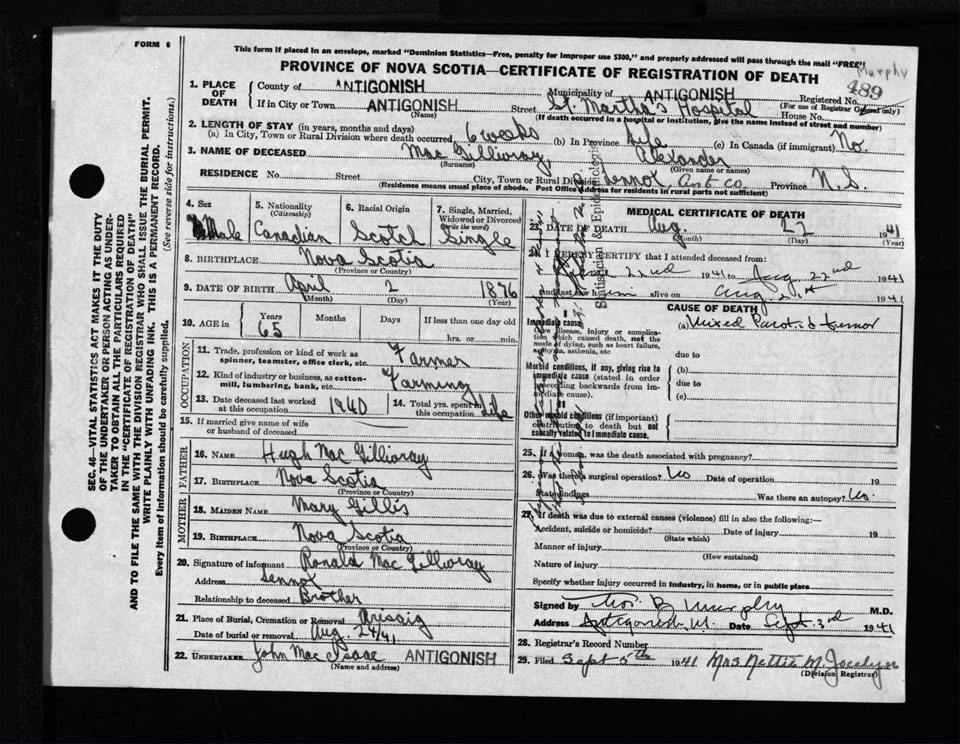 FORM 6
This form if placed in an envelope, marked "Dominion Statistics—Free, penalty for improper use $300," and properly addressed will pass through the mail "FREE"
Murphy
PROVINCE OF NOVA SCOTIA—CERTIFICATE OF REGISTRATION OF DEATH
489
1. PLACE OF DEATH
County of ANTIGONISH Municipality of ANTIGONISH Registered No.
(For use of Registrar General only)
If in City or Town ANTIGONISH Street St. Martha's Hospital House No.
(Name) (If death occurred in a hospital or institution, give the name instead of street and number)
2. LENGTH OF STAY (in years, months and days)
(a) In City, Town or Rural Division where death occurred 6 weeks (b) In Province Life (c) In Canada (if immigrant) No.
3. NAME OF DECEASED Mac Gillivray Alexander
(Surname) (Given name or names)
RESIDENCE No. Street City, Town or Rural Division Ant Co. Province N.S.
(Residence means usual place of abode. Post Office Address for residents in rural parts not sufficient)
4. Sex Male
5. Nationality (Citizenship) Canadian
6. Racial Origin Scotch
7. Single, Married, Widowed or Divorced (Write the word) Single
8. BIRTHPLACE Nova Scotia
(Province or Country)
9. DATE OF BIRTH April 2 1876
(Month) (Day) (Year)
10. AGE in Years 65 Months Days If less than one day old hrs. or min.
OCCUPATION
11. Trade, profession or kind of work as spinner, teamster, office clerk, etc. Farmer
12. Kind of industry or business, as cotton-mill, lumbering, bank, etc. Farming
13. Date deceased last worked at this occupation 1940
14. Total yrs. spent in this occupation Life
15. If married give name of wife or husband of deceased
FATHER
16. NAME Hugh Mac Gillivray
17. BIRTHPLACE Nova Scotia
(Province or Country)
MOTHER
18. MAIDEN NAME Mary Gillis
19. BIRTHPLACE Nova Scotia
(Province or Country)
20. Signature of informant Ronald Mac Gillivray
Address
Relationship to deceased Brother
21. Place of Burial, Cremation or Removal Arisaig
Date of burial or removal Aug 24/41
22. UNDERTAKER John Mac Isaac ANTIGONISH
(Name and address)
MEDICAL CERTIFICATE OF DEATH
23. DATE OF DEATH Aug. 22 1941
(Month) (Day) (Year)
24. I HEREBY CERTIFY that I attended deceased from:
22nd 1941 to Aug. 22nd 1941
and last saw him alive on Aug. 21st 1941
CAUSE OF DEATH
Immediate cause
Give disease, injury or complication which caused death, not the mode of dying, such as heart failure, asphyxia, asthenia, etc
(a) Mixed Parotid tumor
due to
Morbid conditions, if any, giving rise to immediate cause (stated in order preceding backwards from immediate cause).
(b)
due to
(c)
Other morbid conditions (if important) contributing to death but not causally related to immediate cause.
25. If a woman, was the death associated with pregnancy?
26. Was there a surgical operation? No Date of operation 19
State findings Was there an autopsy? No.
27. If death was due to external causes (violence) fill in also the following:—
Accident, suicide or homicide? Date of injury 19
(State which)
Manner of injury
(How sustained)
Nature of injury
Specify whether injury occurred in industry, in home, or in public place
Signed by Geo. B Murphy M.D.
Address Antigonish Date Sept. 3rd 1941
28. Registrar's Record Number
29. Filed Sept 5th 1941 Mrs Nettie M. Jocelyn
(Division Registrar)
Statistician & Epidemiologist
SEC. 46—VITAL STATISTICS ACT MAKES IT THE DUTY
OF THE UNDERTAKER OR PERSON ACTING AS UNDER-
TAKER TO OBTAIN ALL THE PARTICULARS REQUIRED
IN THE "CERTIFICATE OF REGISTRATION OF DEATH"
AND TO FILE THE SAME WITH THE DIVISION REGISTRAR WHO SHALL ISSUE THE BURIAL PERMIT.
WRITE PLAINLY WITH UNFADING INK. THIS IS A PERMANENT RECORD.
Every item of Information should be carefully supplied.
(See reverse side for instructions.)